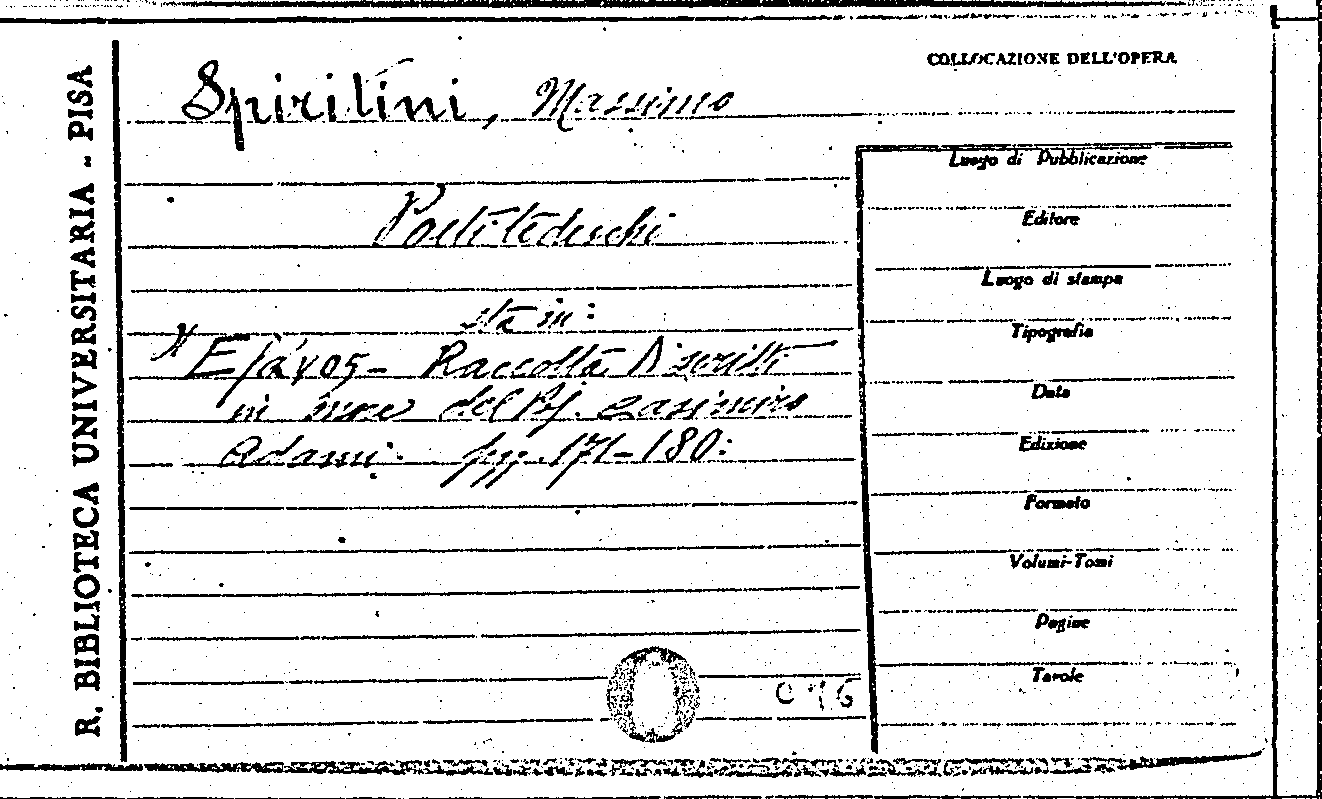 R. BIBLIOTECA UNIVERSITARIA - PISA
COLLOCAZIONE DELL'OPERA
Spiritini, Massimo
Poeti tedeschi
sta in:
Ἔρανος - Raccolta di scritti
in onore del Casimiro
Adami. pp. 171-180.
Luogo di Pubblicazione
Editore
Luogo di stampa
Tipografia
Data
Edizione
Formato
Volumi-Tomi
Pagine
Tavole